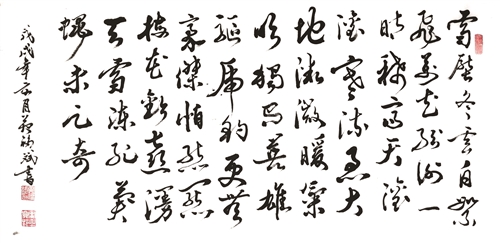 雪壓冬雲白絮
飛萬花紛謝一
時稀高天滾
滾寒流急大
地微微暖氣
吹獨有英雄
驅虎豹更無
豪傑怕熊羆
梅花歡喜漫
天雪凍死蒼
蠅未足奇
戊戌年月書